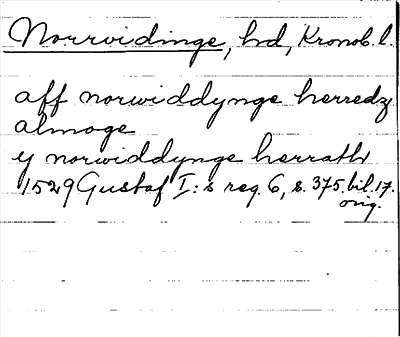 Norrvidinge, hd, Kronob. l.
aff norwiddynge herredz
almoge
y norwiddynge herrath
1529 Gustaf I:s reg. 6, s. 375. bil. 17.
orig.